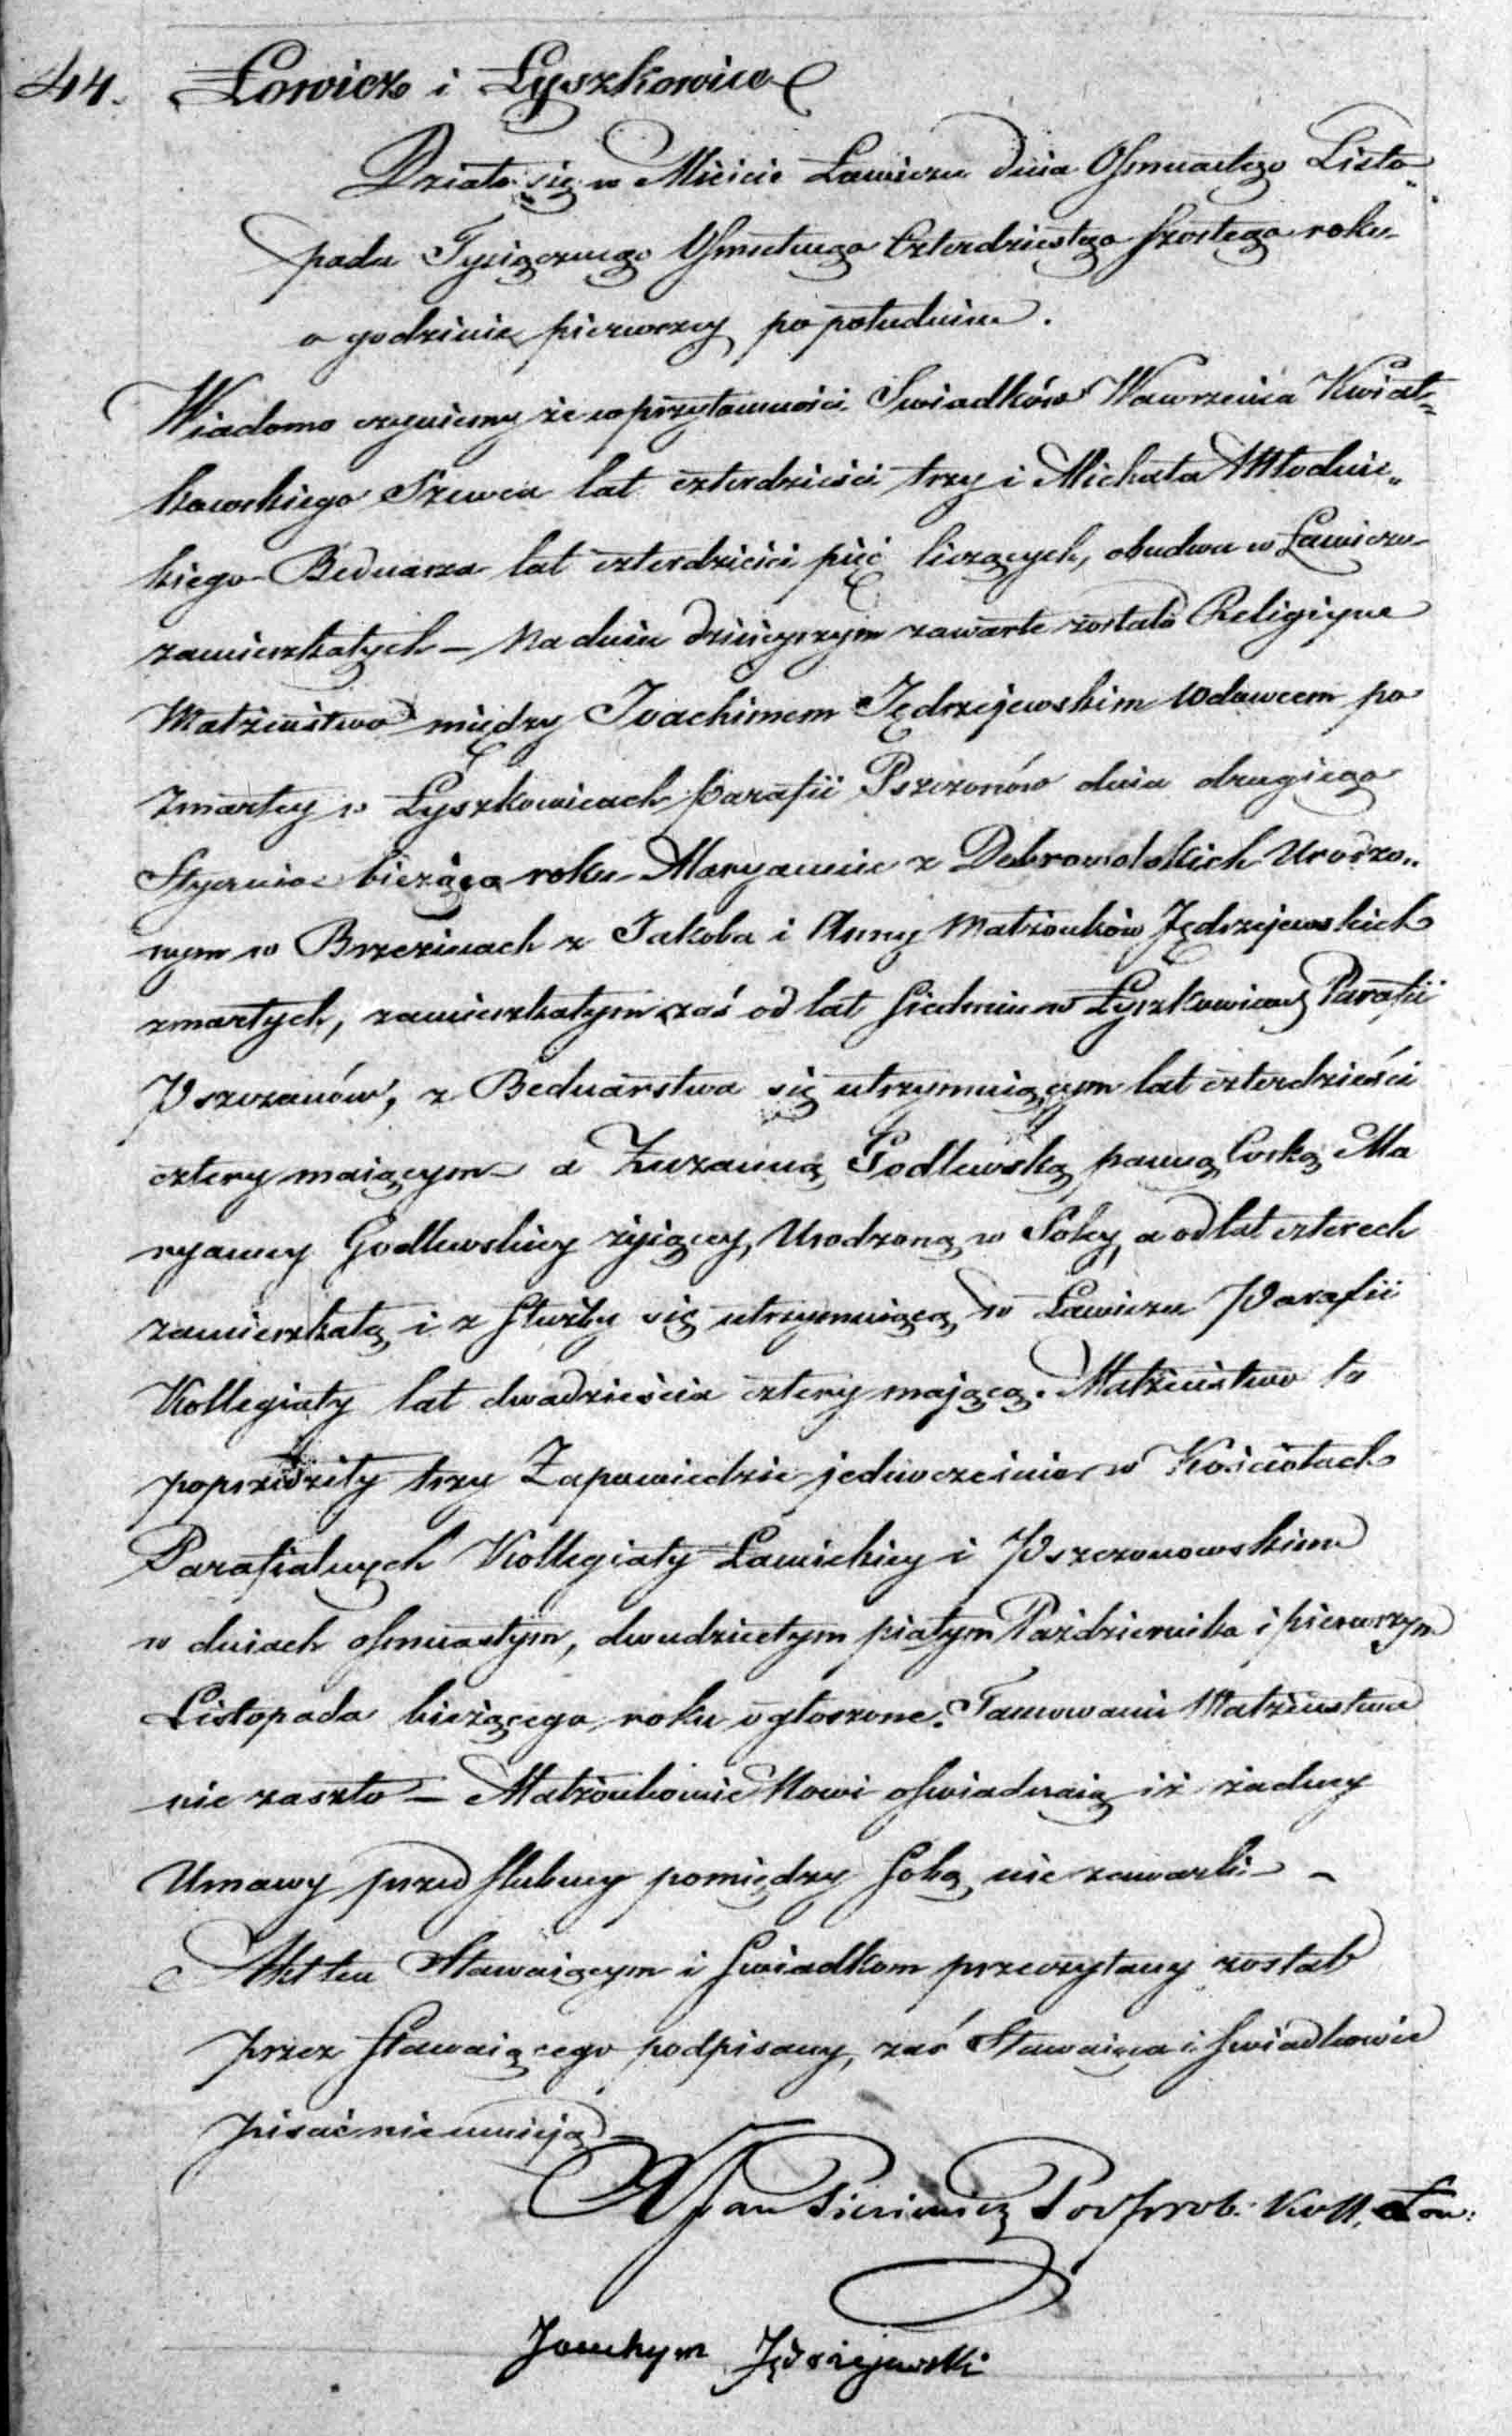 44. Łowicz i Łyszkowice
Działo się w Mieście Łowiczu dnia Osmnastego Listo„
pada Tysiącznego Osmsetnego Czterdziestego szostego roku
o godzinie pierwszey po południu.
Wiadomo czyniemy że w przytomności Swiadków Wawrzeńca Kwiat=
kowskiego Szewca lat czterdzieści trzy i Michała Młodnic„
kiego Bednarza lat czterdzieści pięć liczących, obudwu w Łowiczu
zamieszkałych – Na dniu dzisieyszym zawarte zostało Religijne
Małżeństwo między Joachimem Jędrzejewskim Wdowcem po
zmarłey w Łyszkowicach Parafii Pszczonów dnia drugiego
Stycznia bieżąco roku Maryannie z Dobrowolskich Urodzo„
nym w Brzezinach z Jakoba i Anny Małżonków Jędrzejewskich
zmarłych, zamieszkałym zaś od lat siedmiu w Łyszkowicach Parafii
Pszczonów, z Bednarstwa się utrzymuiącym lat czterdzieści
cztery maiącym a Zuzanną Godlewską panną Corką Ma
ryanny Godlewskiey żyiącey, Urodzoną w Soley, a od lat czterech
zamieszkałą i z służby się utrzymuiącą w Łowiczu Parafii
Kollegiaty lat dwadzieścia cztery mającą. Małżeństwo to
poprzedziły trzy Zapowiedzie jednocześnie w Kościołach
Parafialnych Kollegiaty Łowickiey i Pszczonowskim
w dniach osmnastym, dwudziestym piątym Października i pierwszym
Listopada bieżącego roku ogłoszone. Tamowanie Małżeństwa
nie zaszło – Małżonkowie Nowi oswiadczaią iż żadney
Umowy przed slubney pomiędzy sobą nie zawarli –
Akt ten Stawaiącym i swiadkom przeczytany został
przez stawaiącego podpisany, zaś Stawaiąca i swiadkowie
pisać nie umieją –
X Jan Podprob: Koll. Łow:
Joachym Jędrzejewski